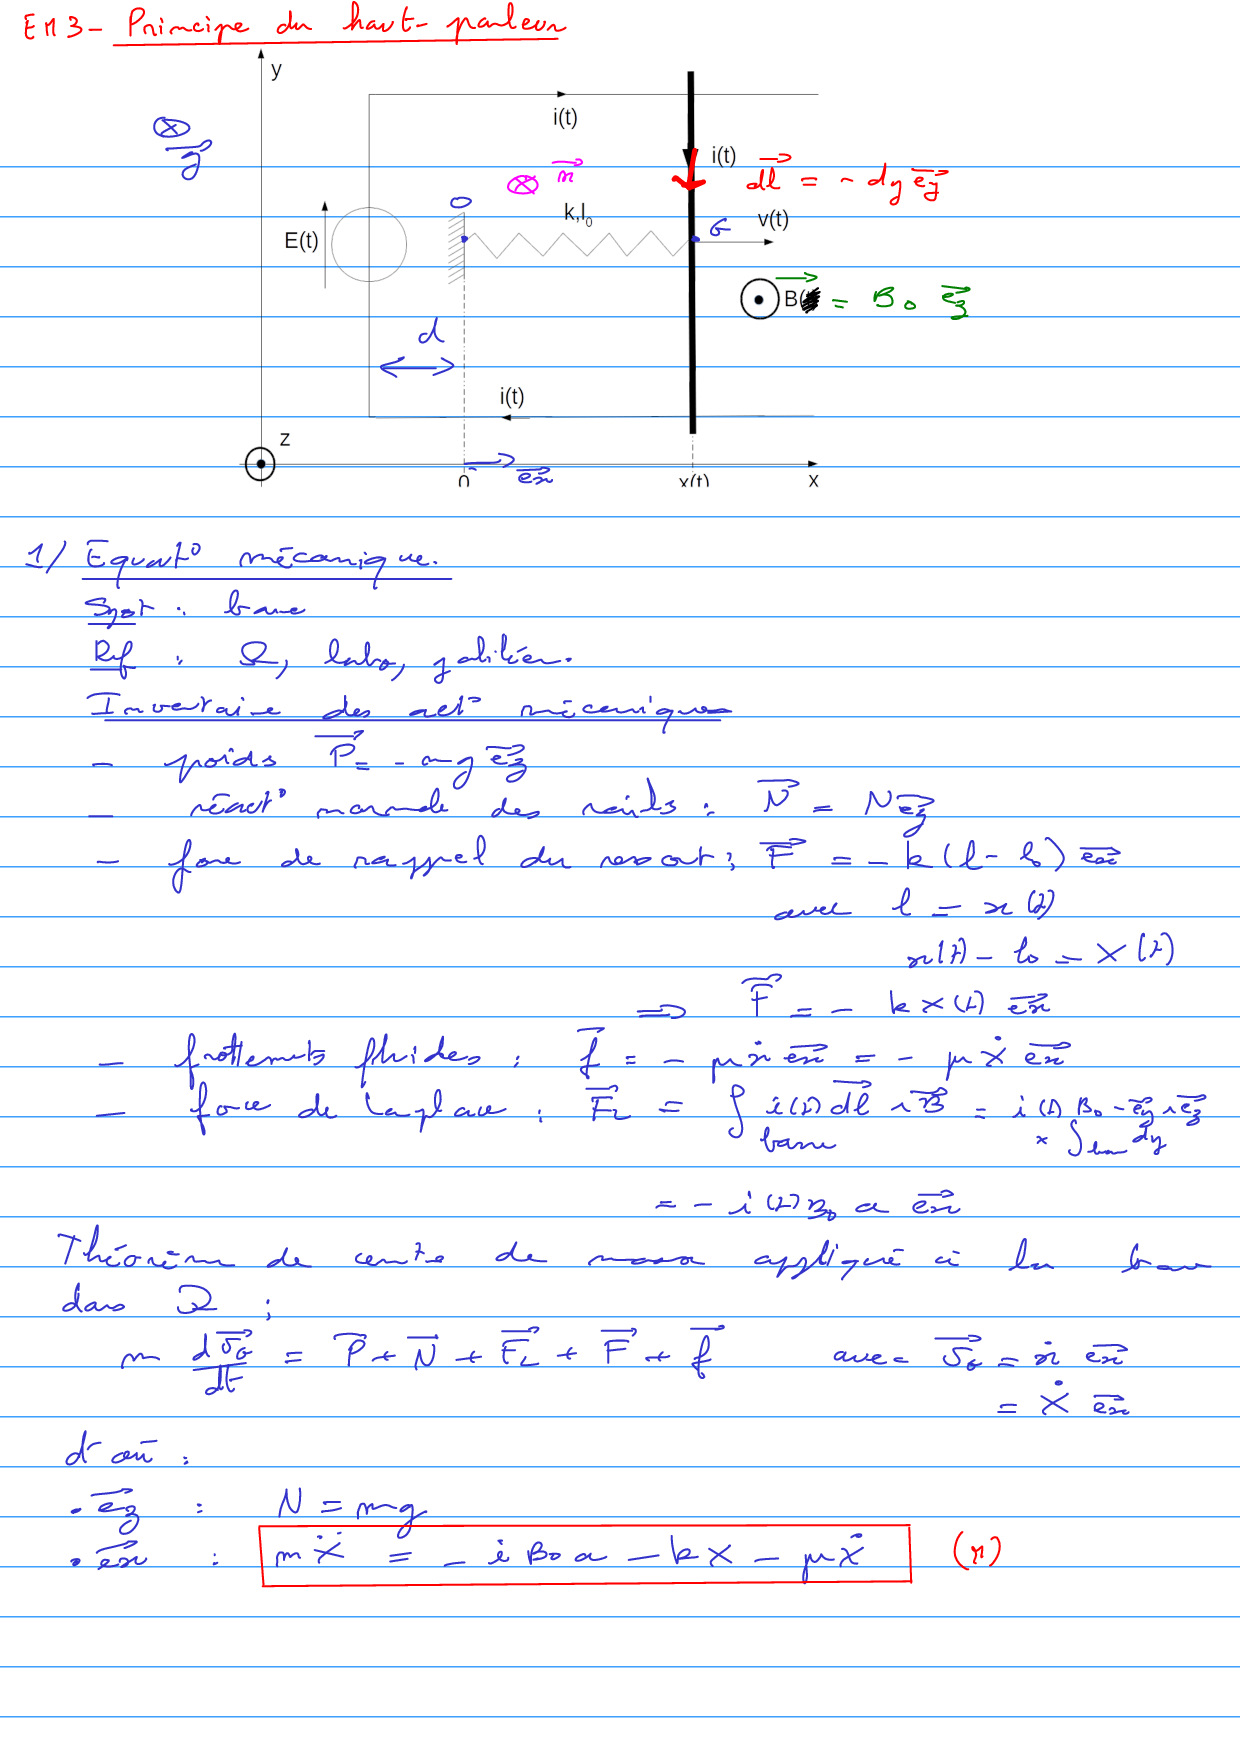 EM3 - Principe du haut-parleur
y
i(t)
g
n
i(t)
dl = - dy ey
O
k,l0
G
v(t)
E(t)
B = B0 ez
d
i(t)
z
0
ex
x(t)
x
1/ Equat° mécanique.
Syst : barre
Ref : R, labo, galiléen.
Inventaire des act° mécaniques
- poids P = - mg ez
- réact° normale des rails : N = N ez
- force de rappel du ressort : F = - k (l - l0) ex
avec l = x(t)
x(t) - l0 = X(t)
=> F = - k X(t) ex
- frottements fluides : f = - μ ẋ ex = - μ Ẋ ex
- force de Laplace : FL = ∫barre i(t) dl ∧ B = i(t) B0 - ey ∧ ez
× ∫barre dy
= - i(t) B0 a ex
Théorème de centre de masse appliqué à la barre
dans R :
m dvG/dt = P + N + FL + F + f avec vG = ẋ ex
= Ẋ ex
d'où :
. ez : N = mg
. ex : m Ẍ = - i B0 a - k X - μ Ẋ (M)